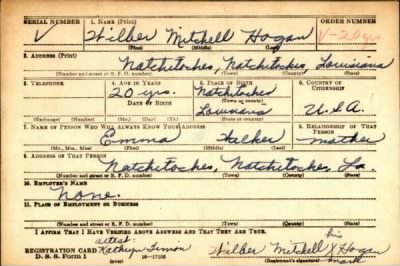 SERIAL NUMBER 1. NAME (Print) ORDER NUMBER
V Wilber Mitchell Hogan V-20 yrs.
(First) (Middle) (Last)
2. ADDRESS (Print)
Natchitoches, Natchitoches, Louisiana
(Number and street or R. F. D. number) (Town) (County) (State)
3. TELEPHONE 4. AGE IN YEARS 5. PLACE OF BIRTH 6. COUNTRY OF CITIZENSHIP
20 yrs. Natchitoches
DATE OF BIRTH (Town or county)
Louisiana U.S.A.
(Exchange) (Number) (Mo.) (Day) (Yr.) (State or country)
7. NAME OF PERSON WHO WILL ALWAYS KNOW YOUR ADDRESS 8. RELATIONSHIP OF THAT PERSON
Emma Walker mother
(Mr., Mrs., Miss) (First) (Middle) (Last)
9. ADDRESS OF THAT PERSON
Natchitoches, Natchitoches, La.
(Number and street or R. F. D. number) (Town) (County) (State)
10. EMPLOYER'S NAME
None.
11. PLACE OF EMPLOYMENT OR BUSINESS
(Number and street or R. F. D. number) (Town) (County) (State)
I AFFIRM THAT I HAVE VERIFIED ABOVE ANSWERS AND THAT THEY ARE TRUE.
attest: his
REGISTRATION CARD Kathryn Simon Wilber Mitchell X Hogan
D. S. S. Form 1 16—17105 (Registrant's signature) mark
(over)